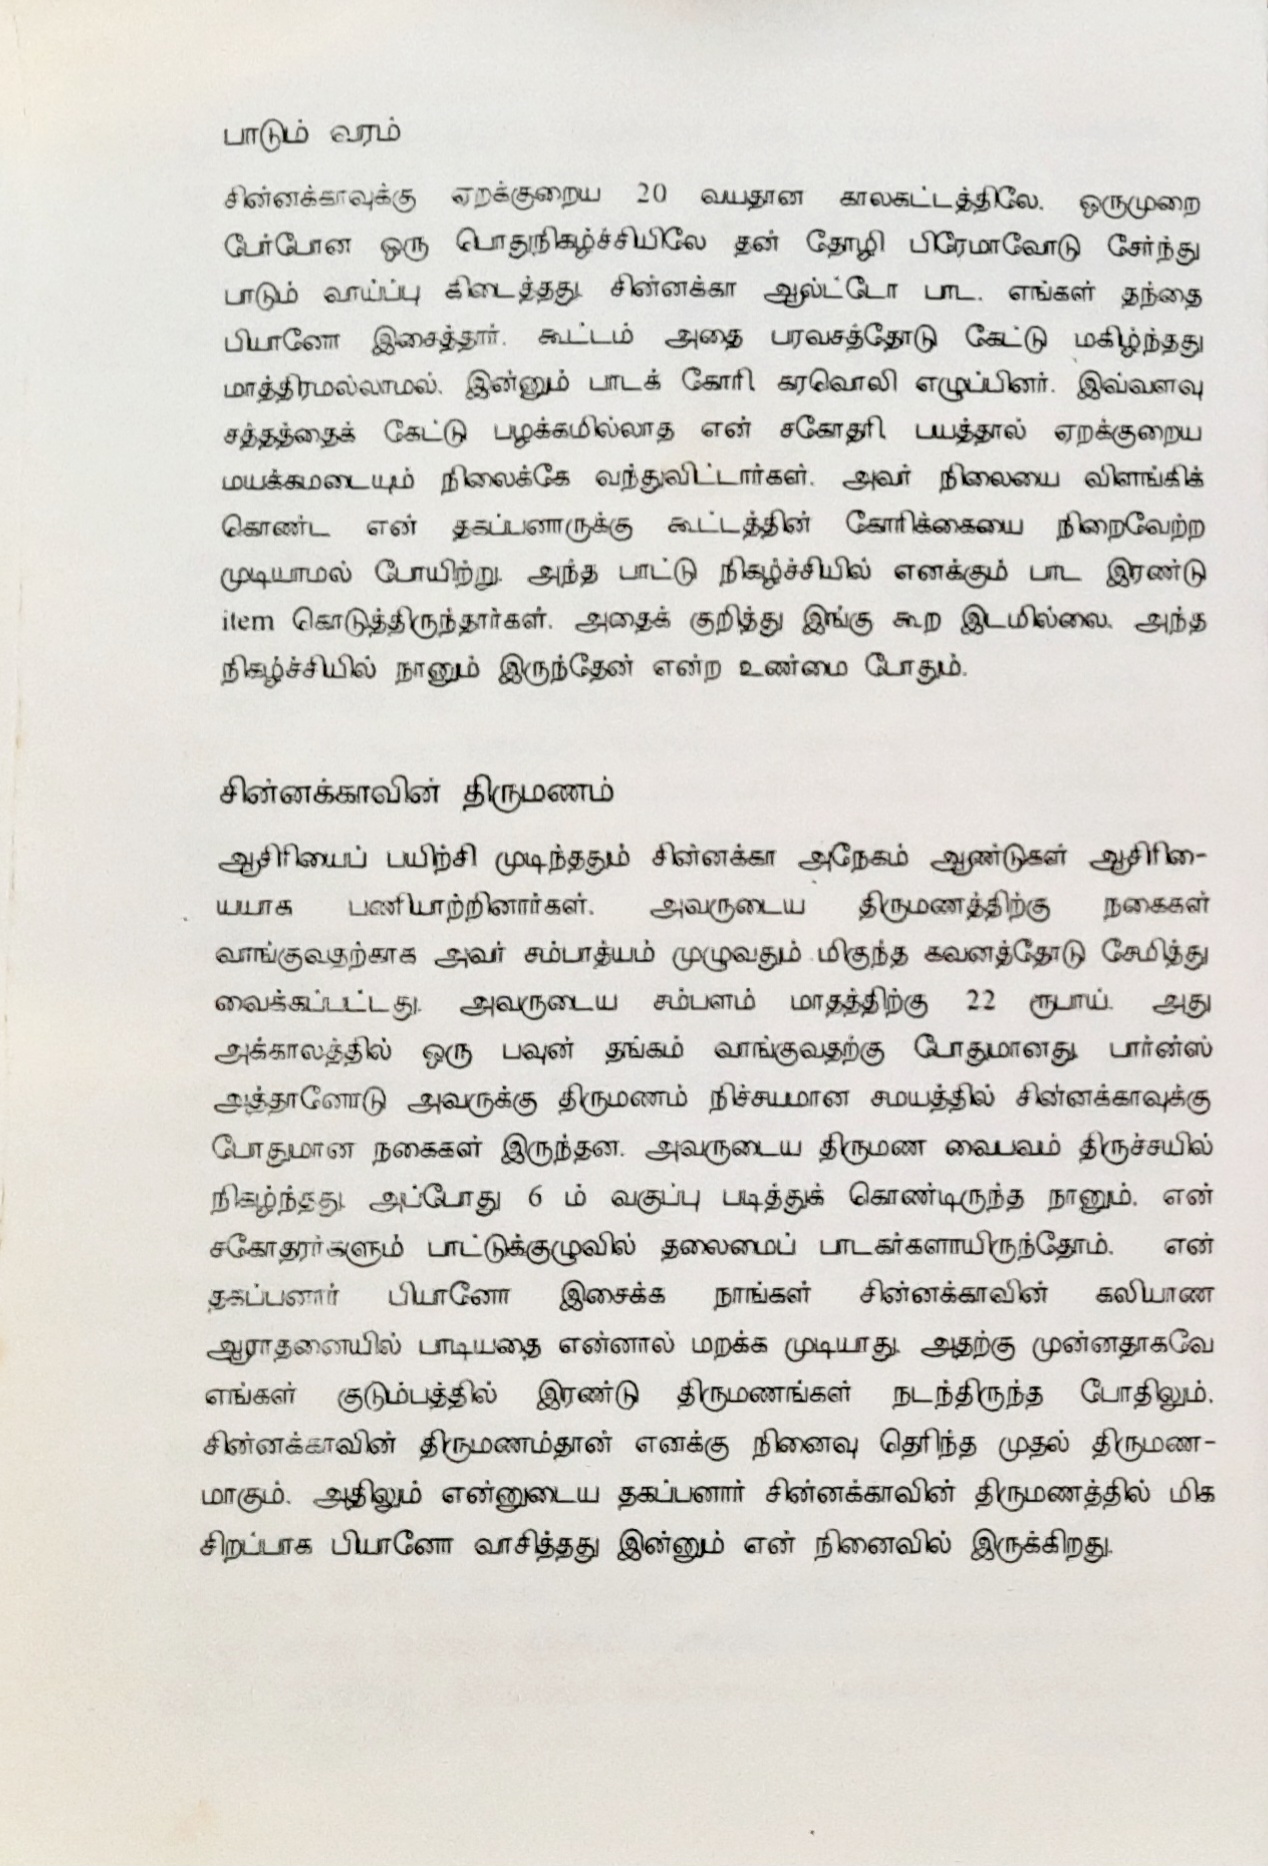 பாடும் வரம்
சின்னக்காவுக்கு ஏறக்குறைய 20 வயதான காலகட்டத்திலே, ஒருமுறை
பேர்போன ஒரு பொதுநிகழ்ச்சியிலே தன் தோழி பிரேமாவோடு சேர்ந்து
பாடும் வாய்ப்பு கிடைத்தது. சின்னக்கா ஆல்ட்டோ பாட, எங்கள் தந்தை
பியானோ இசைத்தார். கூட்டம் அதை பரவசத்தோடு கேட்டு மகிழ்ந்தது
மாத்திரமல்லாமல், இன்னும் பாடக் கோரி, கரவொலி எழுப்பினர். இவ்வளவு
சத்தத்தைக் கேட்டு பழக்கமில்லாத என் சகோதரி, பயத்தால் ஏறக்குறைய
மயக்கமடையும் நிலைக்கே வந்துவிட்டார்கள். அவர் நிலையை விளங்கிக்
கொண்ட என் தகப்பனாருக்கு கூட்டத்தின் கோரிக்கையை நிறைவேற்ற
முடியாமல் போயிற்று. அந்த பாட்டு நிகழ்ச்சியில் எனக்கும் பாட இரண்டு
item கொடுத்திருந்தார்கள். அதைக் குறித்து இங்கு கூற இடமில்லை. அந்த
நிகழ்ச்சியில் நானும் இருந்தேன் என்ற உண்மை போதும்.
சின்னக்காவின் திருமணம்
ஆசிரியைப் பயிற்சி முடிந்ததும் சின்னக்கா அநேகம் ஆண்டுகள் ஆசிரி-
யையாக பணியாற்றினார்கள். அவருடைய திருமணத்திற்கு நகைகள்
வாங்குவதற்காக அவர் சம்பாத்யம் முழுவதும் மிகுந்த கவனத்தோடு சேமித்து
வைக்கப்பட்டது. அவருடைய சம்பளம் மாதத்திற்கு 22 ரூபாய். அது
அக்காலத்தில் ஒரு பவுன் தங்கம் வாங்குவதற்கு போதுமானது. பார்ன்ஸ்
அத்தானோடு அவருக்கு திருமணம் நிச்சயமான சமயத்தில் சின்னக்காவுக்கு
போதுமான நகைகள் இருந்தன. அவருடைய திருமண வைபவம் திருச்சயில்
நிகழ்ந்தது. அப்போது 6 ம் வகுப்பு படித்துக் கொண்டிருந்த நானும், என்
சகோதரர்களும் பாட்டுக்குழுவில் தலைமைப் பாடகர்களாயிருந்தோம். என்
தகப்பனார் பியானோ இசைக்க நாங்கள் சின்னக்காவின் கலியாண
ஆராதனையில் பாடியதை என்னால் மறக்க முடியாது. அதற்கு முன்னதாகவே
எங்கள் குடும்பத்தில் இரண்டு திருமணங்கள் நடந்திருந்த போதிலும்,
சின்னக்காவின் திருமணம்தான் எனக்கு நினைவு தெரிந்த முதல் திருமண-
மாகும். அதிலும் என்னுடைய தகப்பனார் சின்னக்காவின் திருமணத்தில் மிக
சிறப்பாக பியானோ வாசித்தது இன்னும் என் நினைவில் இருக்கிறது.